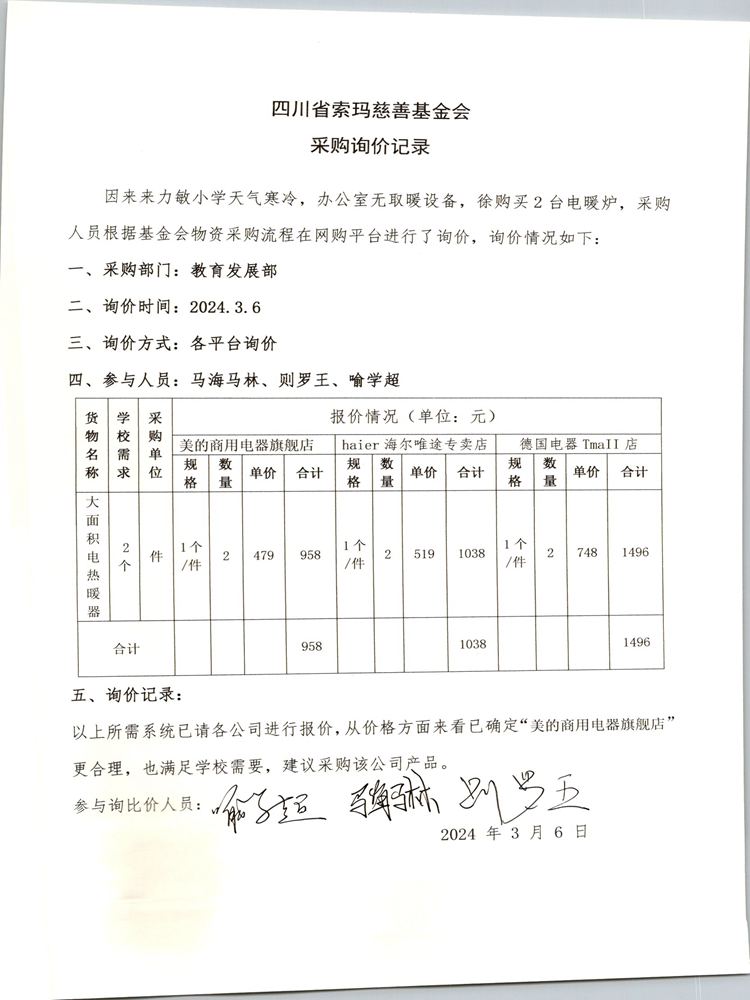 四川省索玛慈善基金会
采购询价记录
因来来力敏小学天气寒冷，办公室无取暖设备，徐购买 2 台电暖炉，采购
人员根据基金会物资采购流程在网购平台进行了询价，询价情况如下：
一、采购部门：教育发展部
二、询价时间：2024.3.6
三、询价方式：各平台询价
四、参与人员：马海马林、则罗王、喻学超
货物名称 学校需求 采购单位 报价情况（单位：元）
美的商用电器旗舰店 haier 海尔唯途专卖店 德国电器 TmaII 店
规格 数量 单价 合计 规格 数量 单价 合计 规格 数量 单价 合计
大面积电热暖器 2个 件 1个/件 2 479 958 1个/件 2 519 1038 1个/件 2 748 1496
合计 958 1038 1496
五、询价记录：
以上所需系统已请各公司进行报价，从价格方面来看已确定“美的商用电器旗舰店”
更合理，也满足学校需要，建议采购该公司产品。
参与询比价人员：喻学超 马海马林 则罗王
2024 年 3 月 6 日